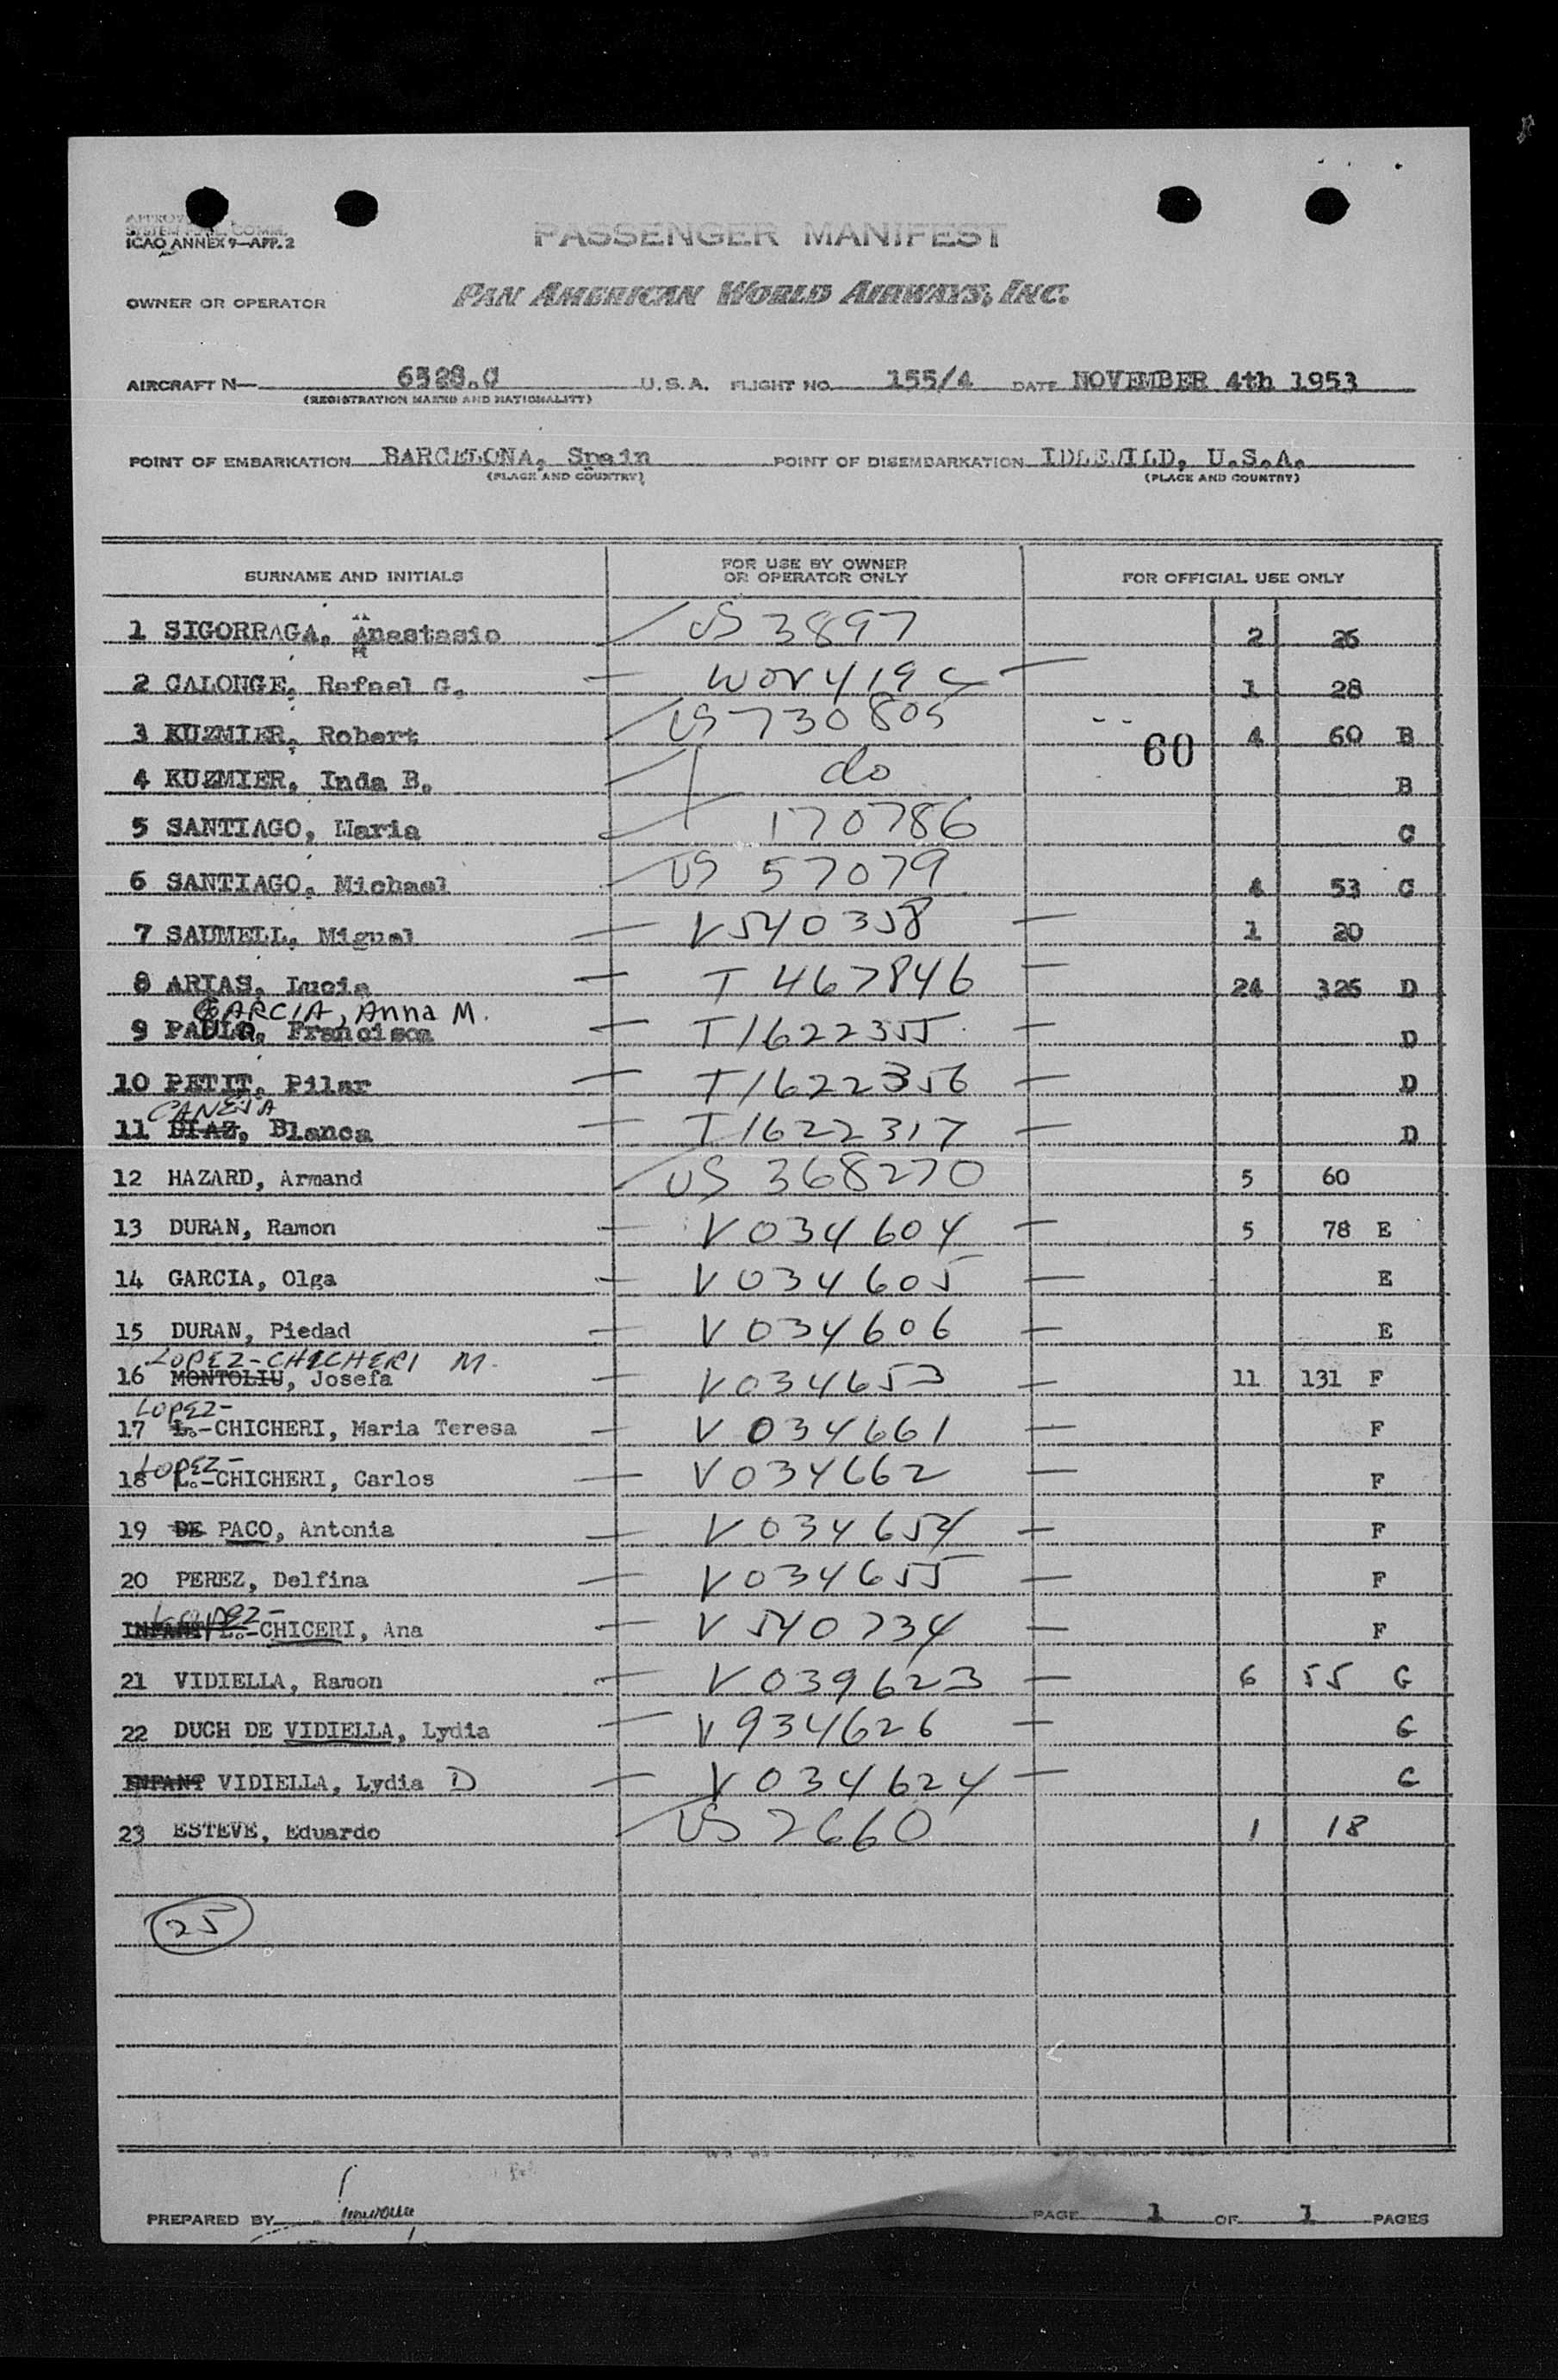 ICAO ANNEX 9—APP. 2
PASSENGER MANIFEST
OWNER OR OPERATOR PAN AMERICAN WORLD AIRWAYS, INC.
AIRCRAFT N— 6528.C U.S.A. FLIGHT NO. 155/4 DATE NOVEMBER 4th 1953
(REGISTRATION MARKS AND NATIONALITY)
POINT OF EMBARKATION BARCELONA, Spain POINT OF DISEMBARKATION IDLEWILD, U.S.A.
(PLACE AND COUNTRY) (PLACE AND COUNTRY)
SURNAME AND INITIALS FOR USE BY OWNER OR OPERATOR ONLY FOR OFFICIAL USE ONLY
1 SIGORRAGA, Anastasio US 3897 2 26
2 CALONGE, Rafael G. 1 28
3 KUZMIER, Robert US 730805 60 4 60 B
4 KUZMIER, Inda B. do B
5 SANTIAGO, Maria 170786 C
6 SANTIAGO, Michael US 57079 4 53 C
7 SAUMELL, Miguel V540358 1 20
8 ARIAS, Lucia T 467846 24 326 D
GARCIA, Anna M.
9 PAULA, Francisca T1622355 D
10 PETIT, Pilar T1622356 D
CANEJA
11 DIAZ, Blanca T1622317 D
12 HAZARD, Armand US 368270 5 60
13 DURAN, Ramon V034604 5 78 E
14 GARCIA, Olga V034605 E
15 DURAN, Piedad V034606 E
LOPEZ-CHICHERI M.
16 MONTOLIU, Josefa V034653 11 131 F
LOPEZ-
17 L.-CHICHERI, Maria Teresa V034661 F
LOPEZ-
18 L.-CHICHERI, Carlos V034662 F
19 DE PACO, Antonia V034654 F
20 PEREZ, Delfina V034655 F
LOPEZ-
INFANT/ L.-CHICERI, Ana V540734 F
21 VIDIELLA, Ramon V039623 6 55 G
22 DUCH DE VIDIELLA, Lydia V934626 G
INFANT VIDIELLA, Lydia D V034624 G
23 ESTEVE, Eduardo US 2660 1 18
25
PREPARED BY PAGE 1 OF 1 PAGES